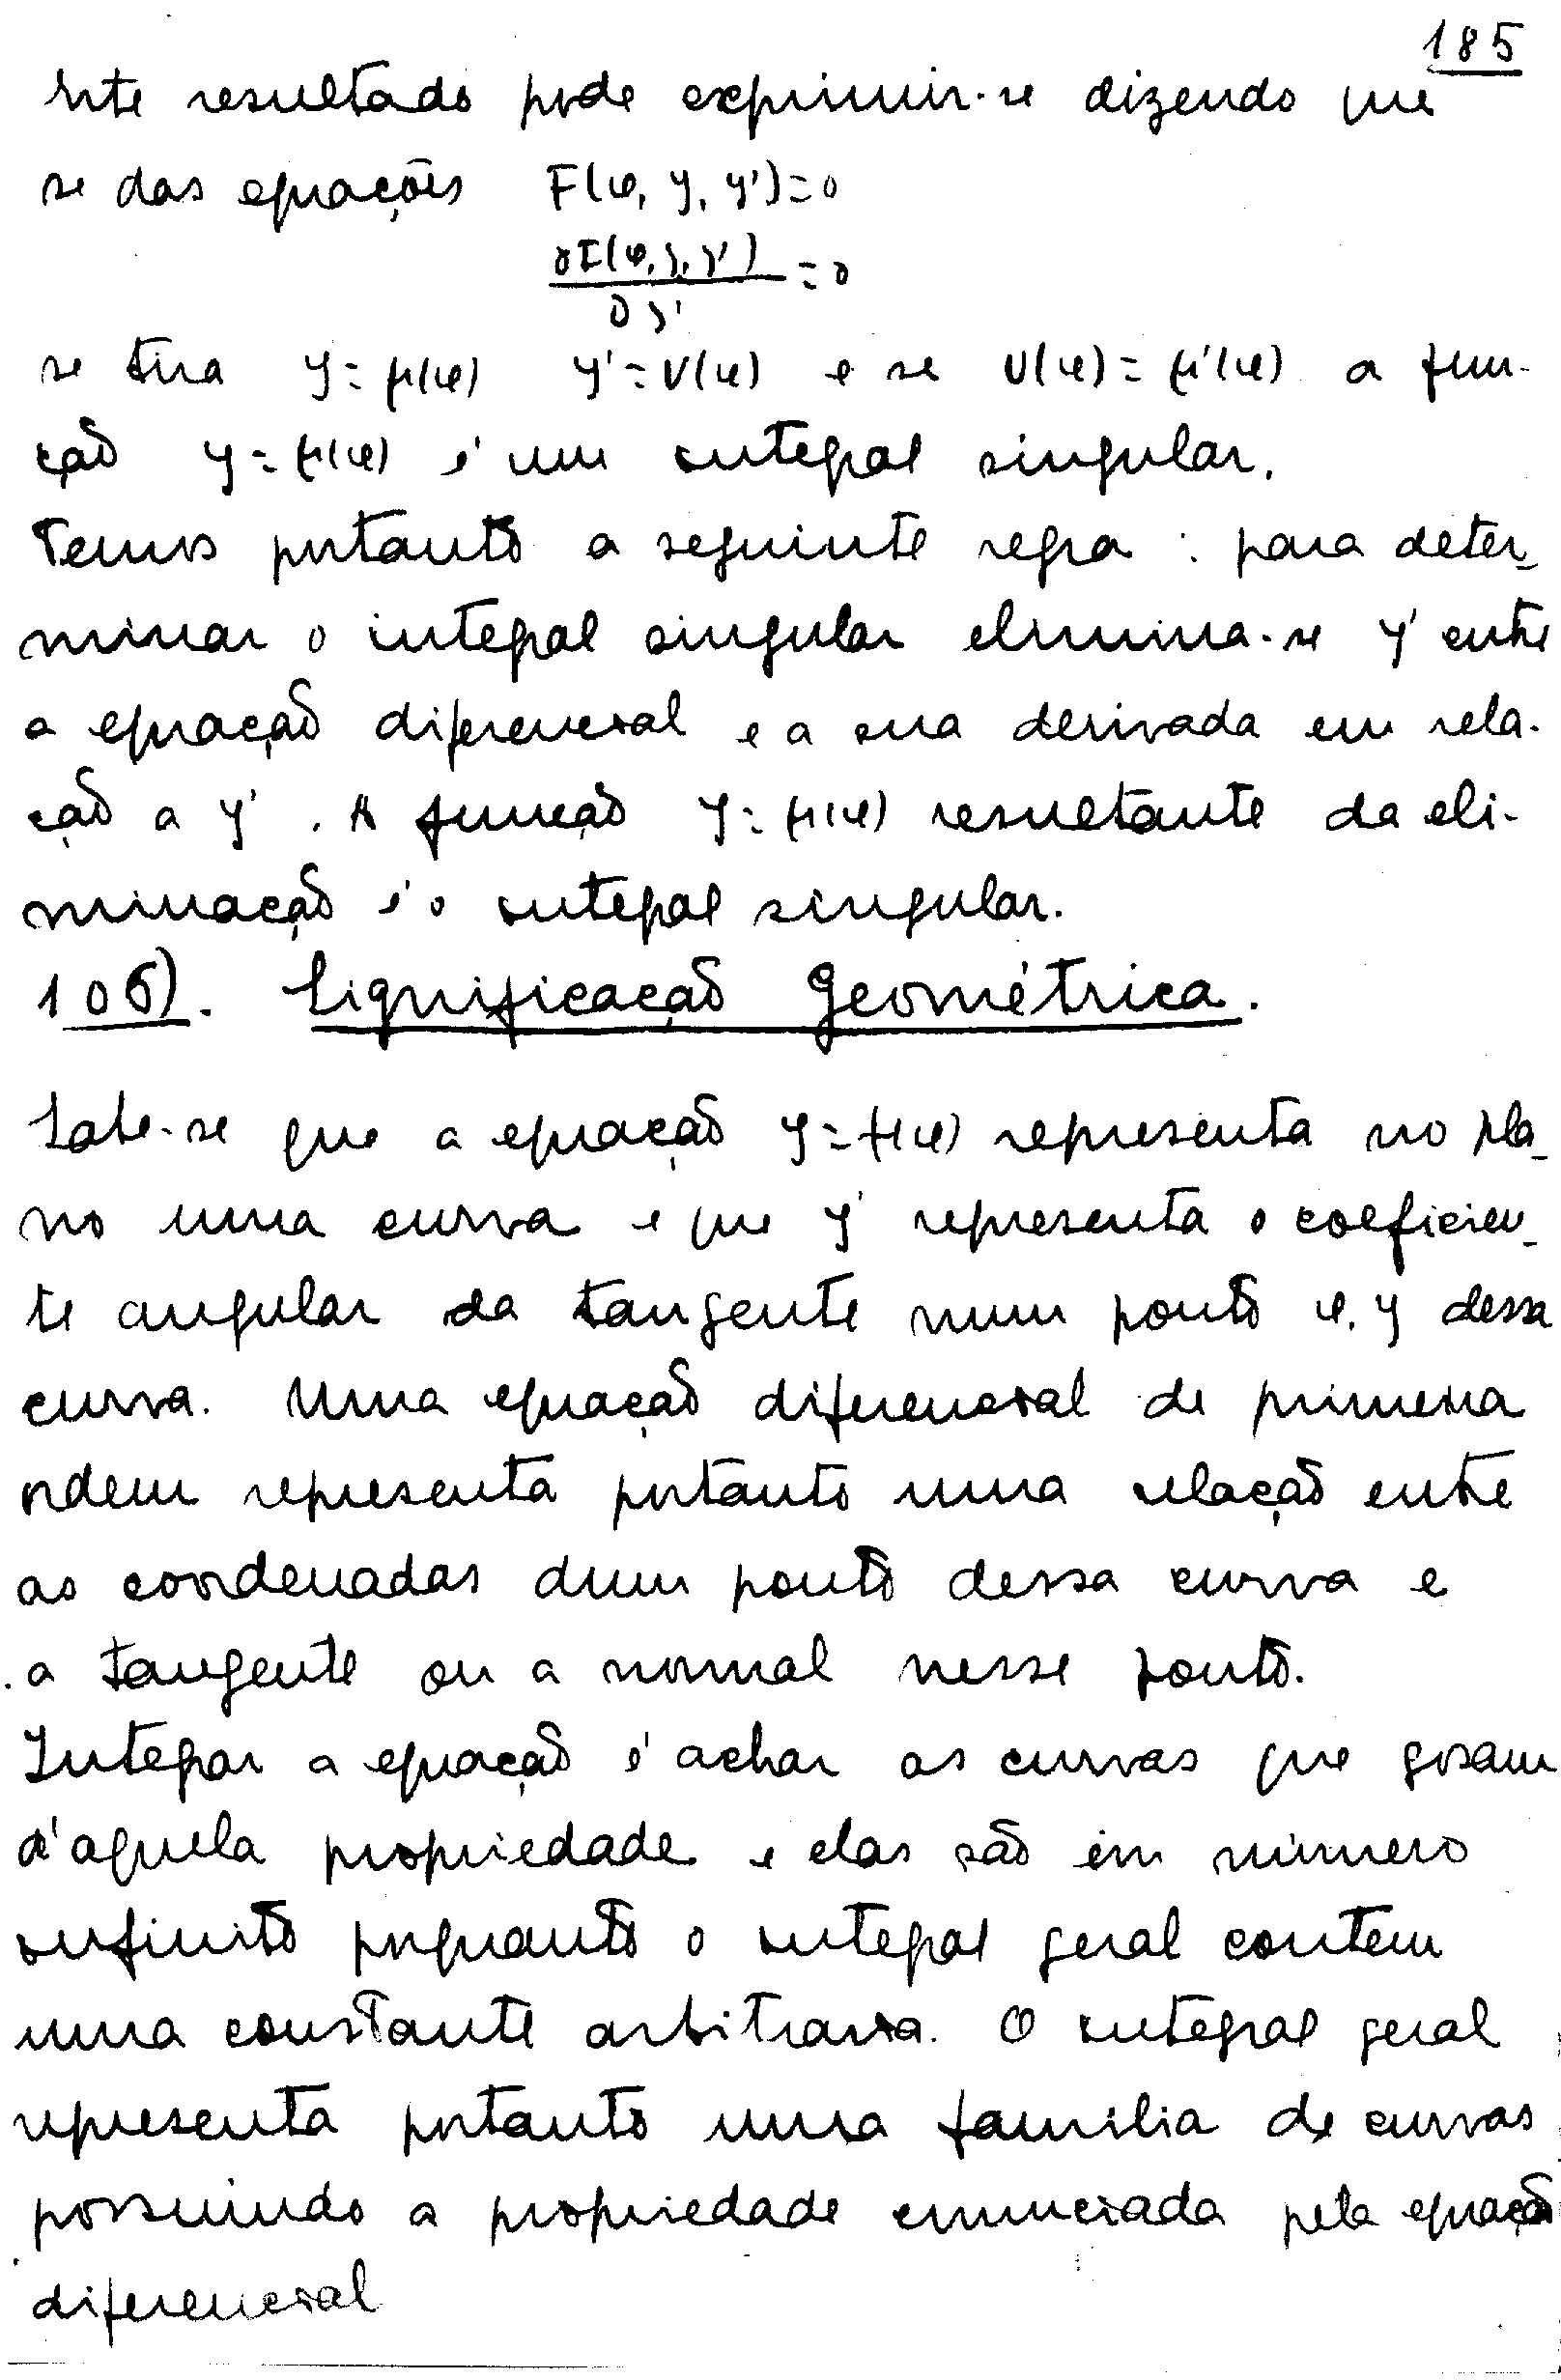 185
Este resultado pode exprimir-se dizendo que
se das equações F(x, y, y') = 0
∂F(x, y, y') / ∂y' = 0
se tira y = μ(x) y' = ν(x) e se ν(x) = μ'(x) a fun-
ção y = μ(x) é um integral singular.
Temos portanto a seguinte regra : para deter-
minar o integral singular elimina-se y' entre
a equação diferencial e a sua derivada em rela-
ção a y'. A função y = μ(x) resultante da eli-
minação é o integral singular.
106). Significação Geométrica.
Sabe-se que a equação y = f(x) representa no pla-
no uma curva e que y' representa o coeficien-
te angular da tangente num ponto x, y dessa
curva. Uma equação diferencial de primeira
ordem representa portanto uma relação entre
as coordenadas dum ponto dessa curva e
a tangente ou a normal nesse ponto.
Integrar a equação é achar as curvas que gosam
d'aquela propriedade e elas são em número
infinito porquanto o integral geral contem
uma constante arbitraria. O integral geral
representa portanto uma familia de curvas
possuindo a propriedade enunciada pela equação
diferencial